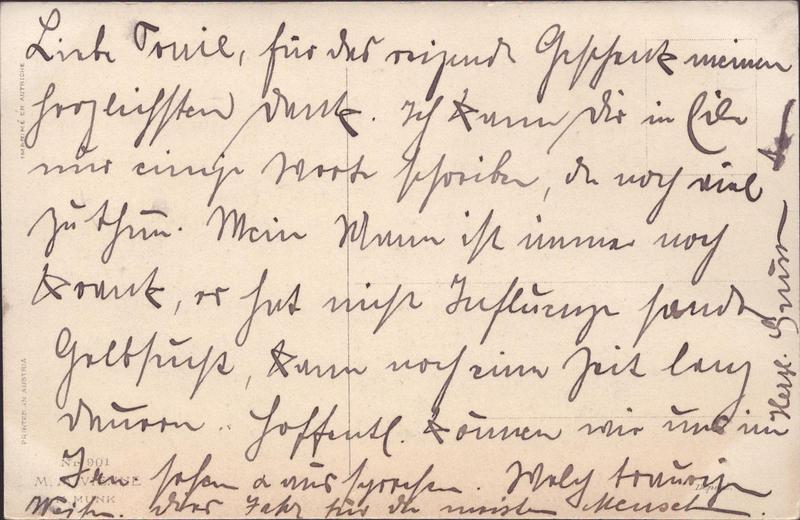 Liebe Tonie, für das reizende Geschenk meinen
herzlichsten Dank. Ich kann Dir in Eile
nur einige Worte schreiben, da noch viel
zu thun. Mein Mann ist immer noch
krank, er hat nicht Influenza sondern
Gelbsucht, kann noch eine Zeit lang
dauern. Hoffentl. können wir uns im
Jan sehen u aussprechen. Welch traurige
Weihn. dies Jahr für die meisten Menschen.
Herzl. Gruss
IMPRIMÉ EN AUTRICHE
PRINTED IN AUSTRIA
Nr. 901
M. M. VIENNE
M. MUNK